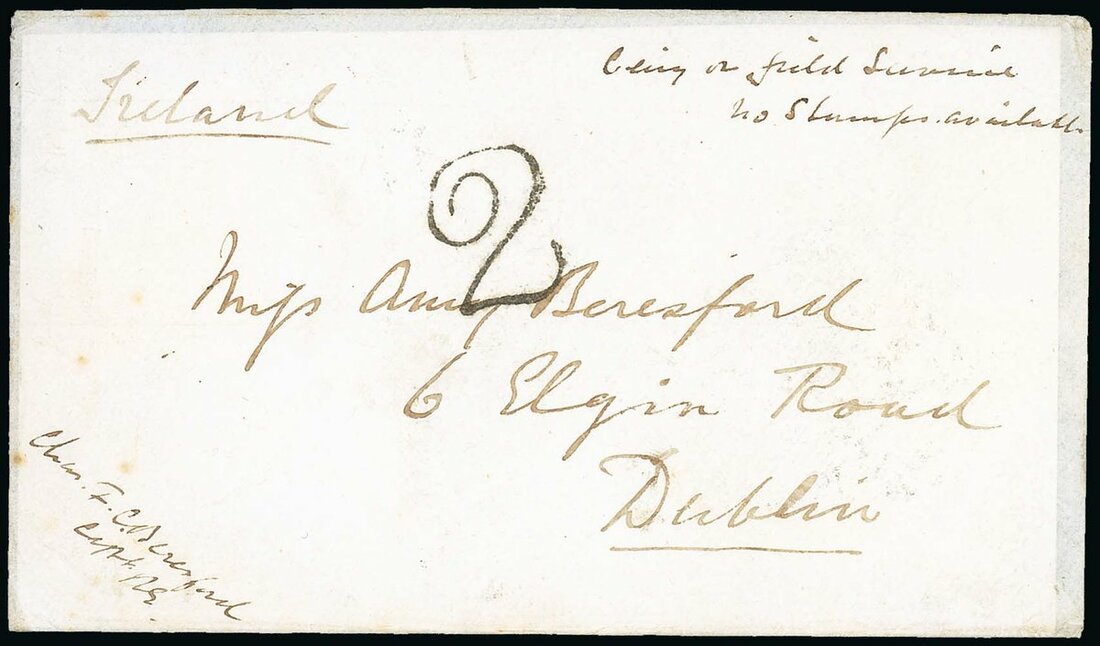 Ireland
being on field Service
no Stamps available
2
Miss Amy Beresford
6 Elgin Road
Dublin
Chas. F. C. Beresford
Capt. R.E.